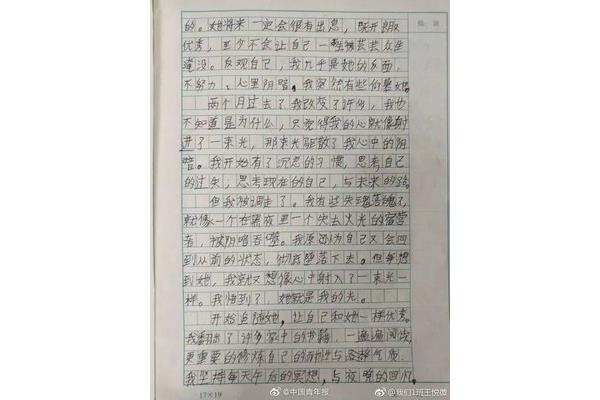 的。她将来一定会很有出息,既开朗又
优秀,至少不会让自己一生被芸芸众生
淹没。反观自己,我几乎是她的反面,
不努力、心里阴暗。我突然有些仰慕她。
两个月过去了我改变了许多,我也
不知道是为什么,只觉得我的心就像射
进了一束光,那束光驱散了我心中的阴
暗。我开始有了沉思的习惯,思考自己
的过失,思考现在的自己,与未来的
但我被调走了。我有些失魂落魄了,
就像一个在黑夜里一个失去火光的宿营
者,被阴暗吞噬。我原以为自己又会回
到从前的状态,彻底堕落下去。但每想
到她,我就又想像心中射入了一束光一
样。我悟到了,她就是我的光。
开始追随她,让自己和她一样优秀。
我翻出了许多家中的书籍,一遍遍阅读,
更重要的修炼自己的耐性与
我坚持每天午后的冥想,与夜晚的回忆,
17×19
@中国青年报
@我们1班王悦微